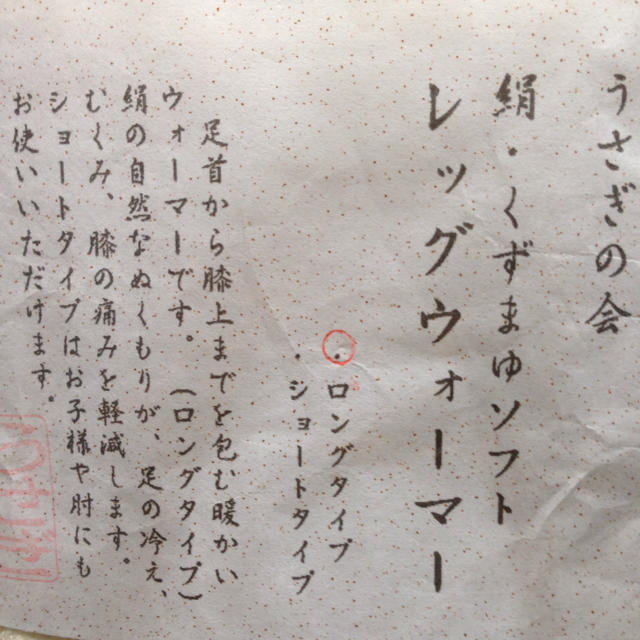 うさぎの会
絹・くずまゆソフト
レッグウォーマー
・ロングタイプ
・ショートタイプ
足首から膝上までを包む暖かい
ウォーマーです。(ロングタイプ)
絹の自然なぬくもりが、足の冷え、
むくみ、膝の痛みを軽減します。
ショートタイプはお子様や肘にも
お使いいただけます。